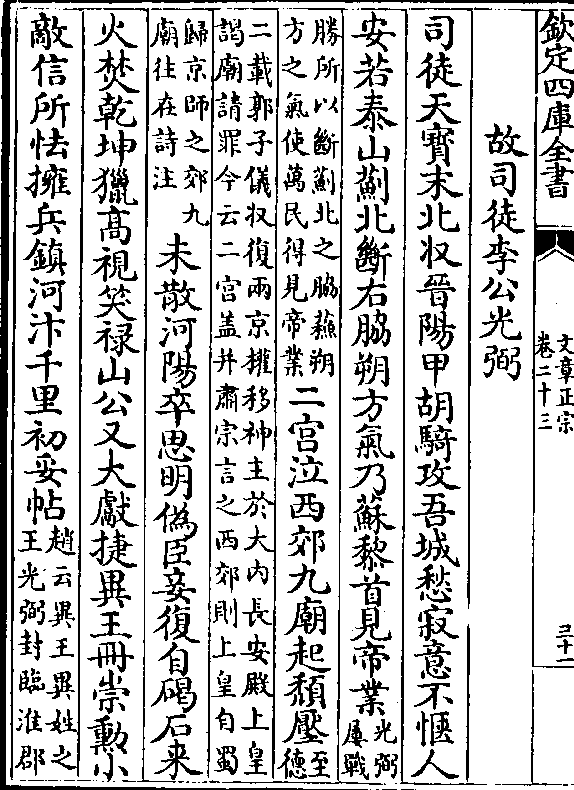 欽定四庫全書
文章正宗
卷二十三
三十一
故司徒李公光弼
司徒天寶末北収晉陽甲胡騎攻吾城愁寂意不愜人
安若泰山薊北斷右脇朔方氣乃蘇黎首見帝業光弼屢戰
勝所以斷薊北之脇蘇朔方之氣使萬民得見帝業二宫泣西郊九廟起頽壓至德
二載郭子儀収復兩京權移神主於大内長安殿上皇謁廟請罪今云二宫盖并肅宗言之西郊則上皇自蜀
歸京師之郊九廟往在詩注未散河陽卒思明偽臣妾復自碣石来
火焚乾坤獵髙視笑禄山公又大獻捷異王冊崇勲小
敵信所怯擁兵鎮河汴千里初妥帖趙云異王異姓之王光弼封臨淮郡